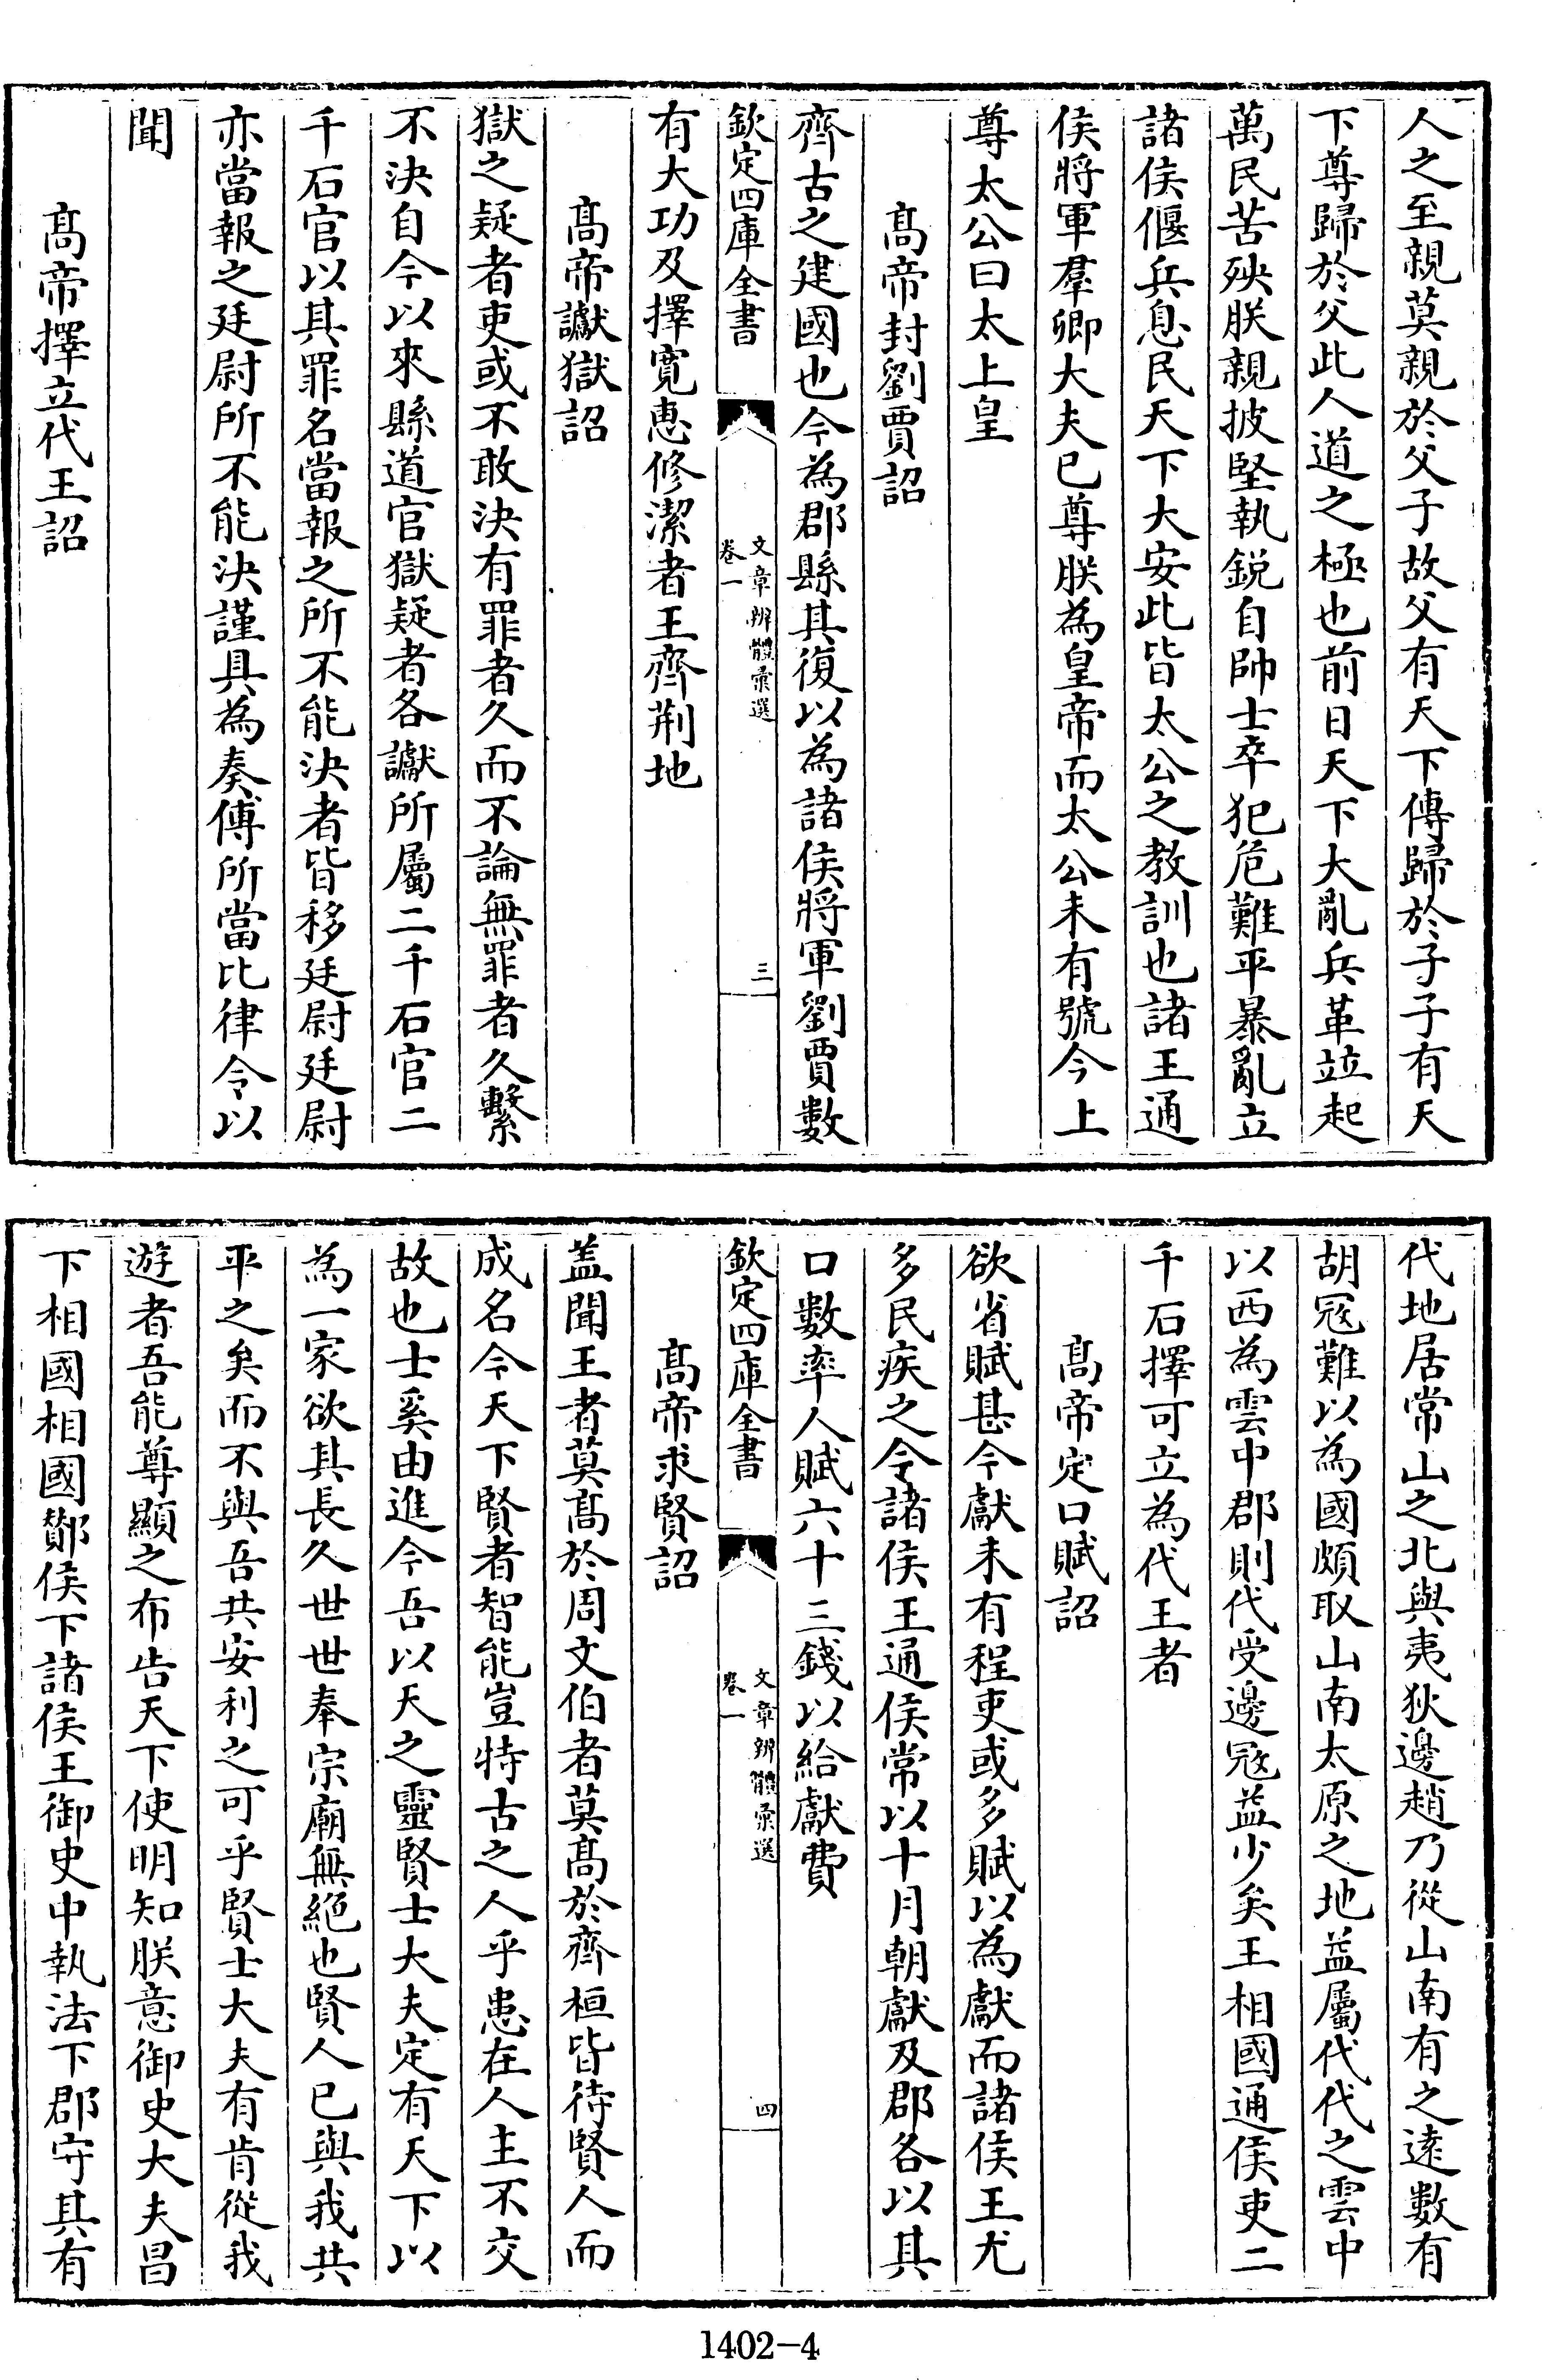 人之至親莫親於父子故父有天下傳歸於子子有天
下尊歸於父此人道之極也前日天下大亂兵革竝起
萬民苦殃朕親披堅執鋭自帥士卒犯危難平暴亂立
諸侯偃兵息民天下大安此皆太公之教訓也諸王通
侯將軍羣卿大夫已尊朕為皇帝而太公未有號今上
尊太公曰太上皇
髙帝封劉賈詔
齊古之建國也今為郡縣其復以為諸侯將軍劉賈數
欽定四庫全書
文章辨體彚選
卷一
三
有大功及擇寛惠修潔者王齊荆地
髙帝讞獄詔
獄之疑者吏或不敢決有罪者久而不論無罪者久繫
不決自今以來縣道官獄疑者各讞所屬二千石官二
千石官以其罪名當報之所不能決者皆移廷尉廷尉
亦當報之廷尉所不能決謹具為奏傅所當比律令以
聞
髙帝擇立代王詔
代地居常山之北與夷狄邊趙乃從山南有之逺數有
胡冦難以為國頗取山南太原之地益屬代代之雲中
以西為雲中郡則代受邊冦益少矣王相國通侯吏二
千石擇可立為代王者
髙帝定口賦詔
欲省賦甚今獻未有程吏或多賦以為獻而諸侯王尤
多民疾之令諸侯王通侯常以十月朝獻及郡各以其
口數率人賦六十三錢以給獻費
欽定四庫全書
文章辨體彚選
卷一
四
髙帝求賢詔
盖聞王者莫髙於周文伯者莫髙於齊桓皆待賢人而
成名今天下賢者智能豈特古之人乎患在人主不交
故也士奚由進今吾以天之靈賢士大夫定有天下以
為一家欲其長久世世奉宗廟無絕也賢人已與我共
平之矣而不與吾共安利之可乎賢士大夫有肯從我
遊者吾能尊顯之布告天下使明知朕意御史大夫昌
下相國相國酇侯下諸侯王御史中執法下郡守其有
1402-4